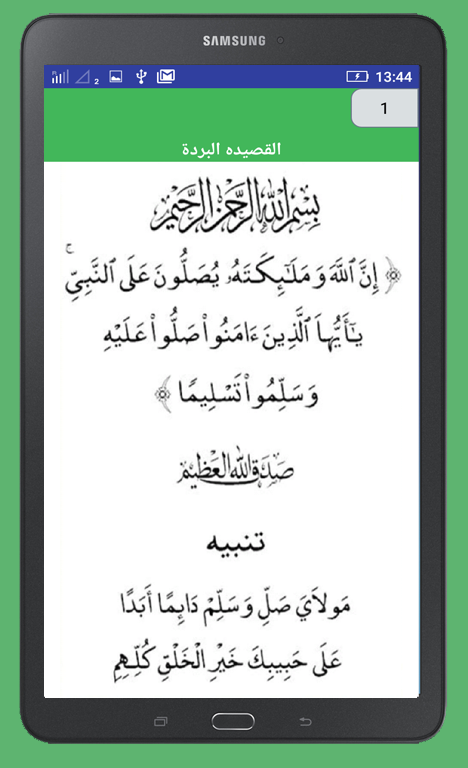 SAMSUNG
2 13:44
1
القصيده البردة
بِسْمِ اللَّهِ الرَّحْمَٰنِ الرَّحِيمِ
﴿ إِنَّ ٱللَّهَ وَمَلَـٰٓئِكَتَهُۥ يُصَلُّونَ عَلَى ٱلنَّبِىِّ ۚ
يَـٰٓأَيُّهَا ٱلَّذِينَ ءَامَنُوا۟ صَلُّوا۟ عَلَيْهِ
وَسَلِّمُوا۟ تَسْلِيمًا ﴾
صَدَقَ اللَّهُ العَظِيم
تنبيه
مَولَايَ صَلِّ وَسَلِّمْ دَائِمًا أَبَدًا
عَلَى حَبِيبِكَ خَيْرِ الْخَلْقِ كُلِّهِمِ